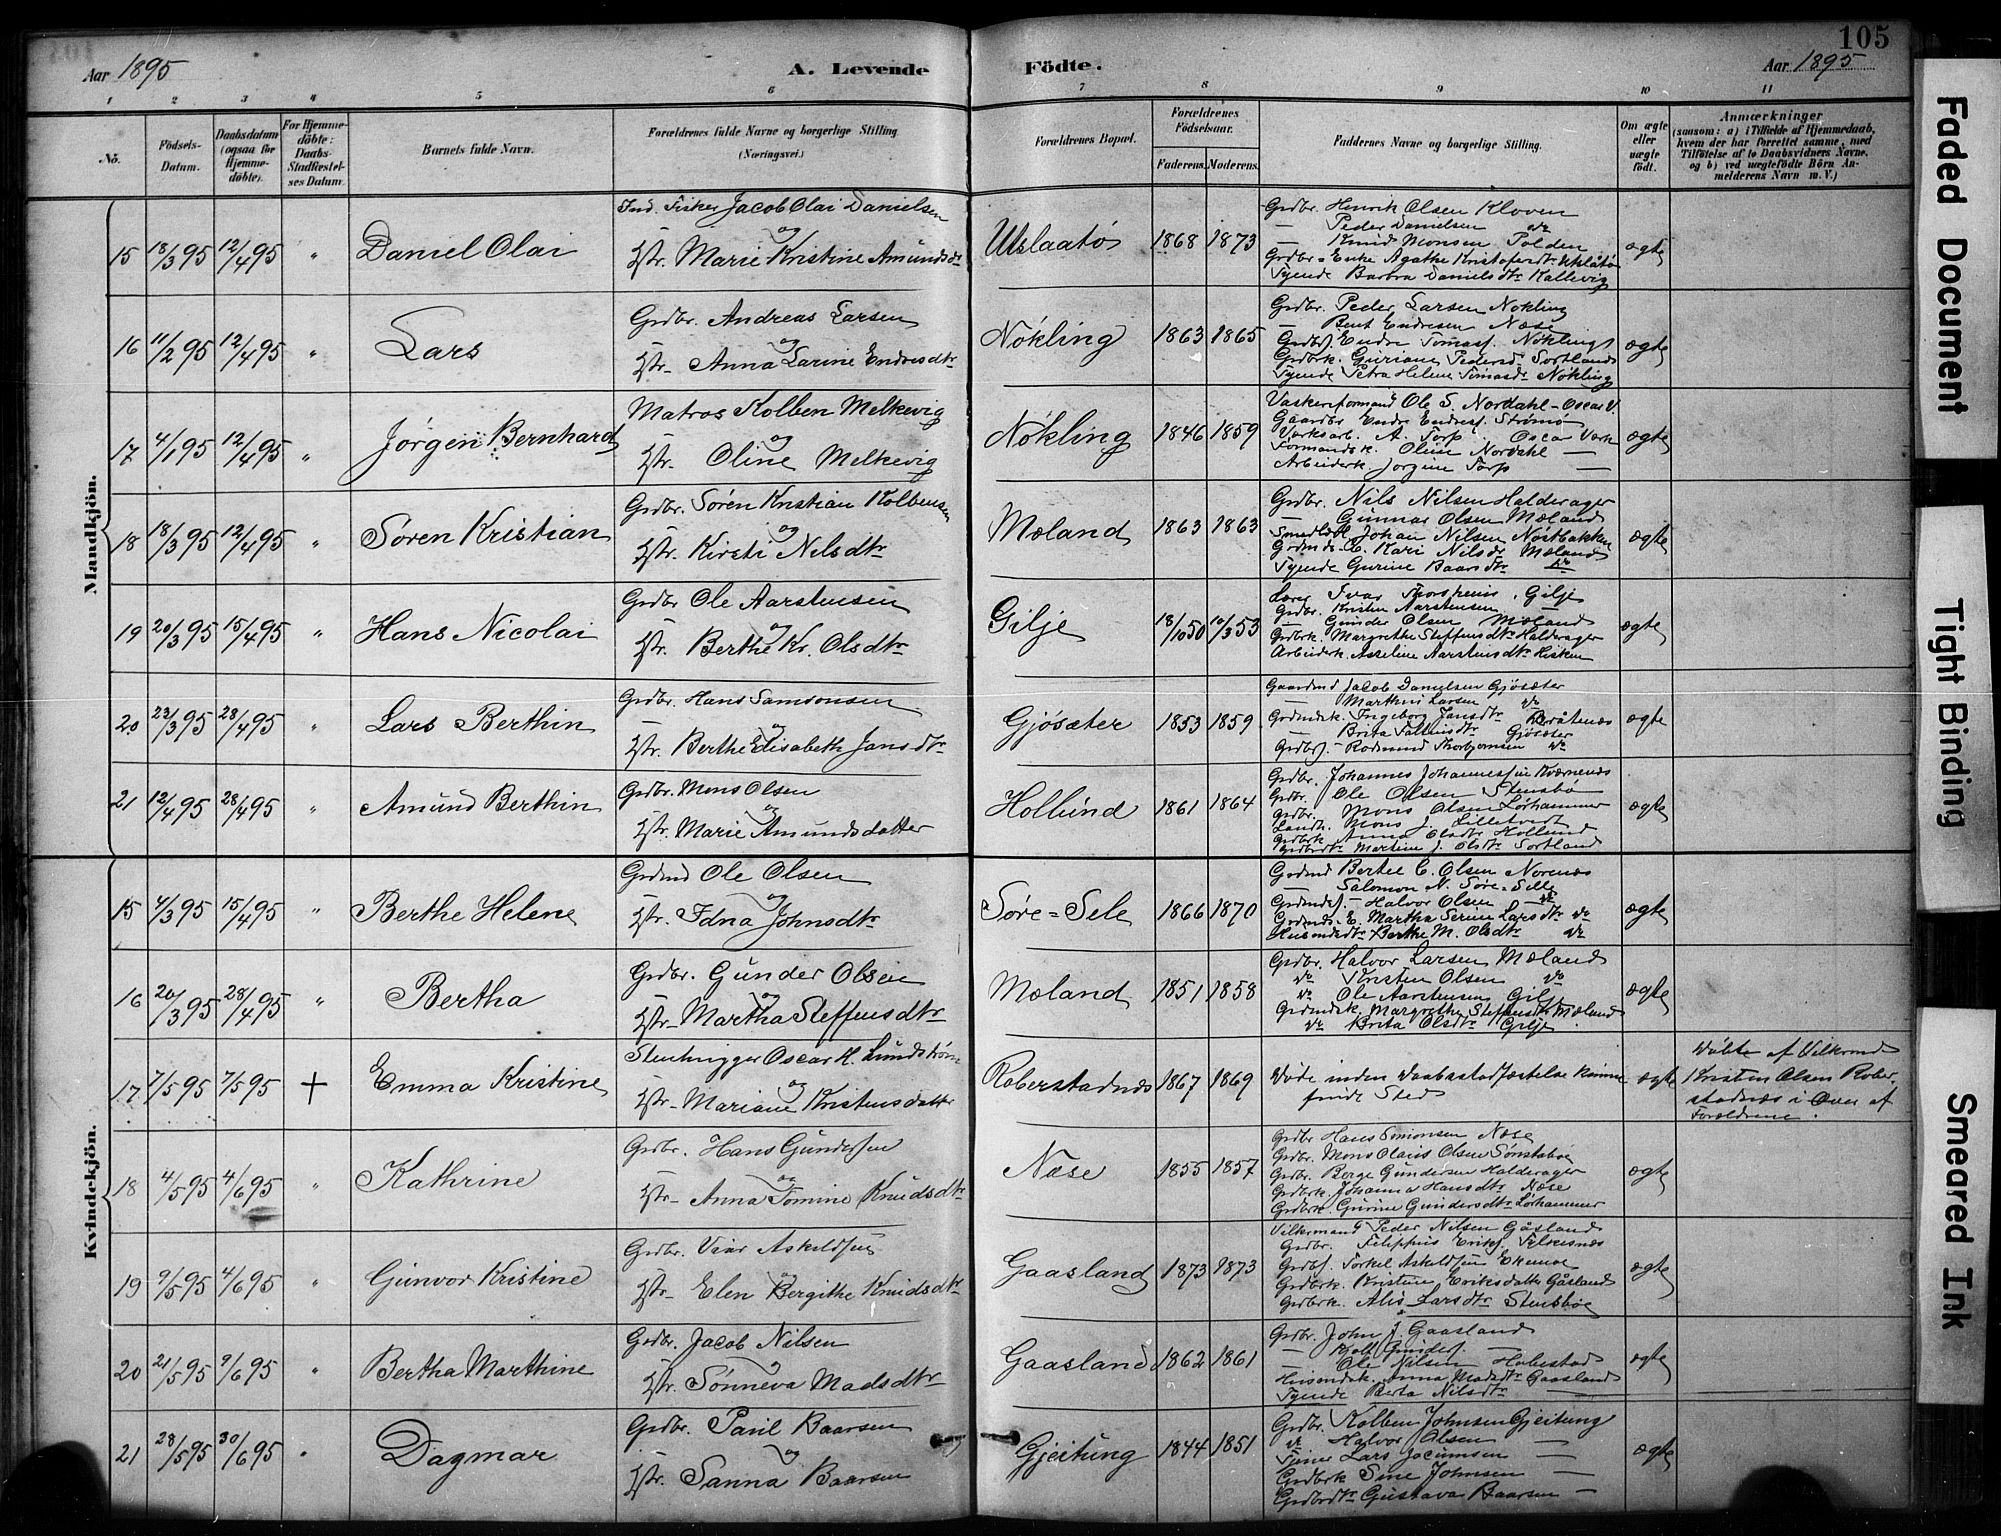 105
Aar 1895
A. Levende
Födte.
Aar 1895
1 2 3 4 5 6 7 8 9 10 11
No.
Födsels-Datum.
Daabsdatum (ogsaa for Hjemme-döbte).
For Hjemme-döbte: Daabs-Stadfæstel-ses Datum.
Barnets fulde Navn.
Forældrenes fulde Navne og borgerlige Stilling (Næringsvei.)
Forældrenes Bopæl.
Forældrenes Födselsaar.
Faderens. Moderens.
Faddernes Navne og borgerlige Stilling.
Om ægte eller uægte födt.
Anmærkninger
(saasom: a) i Tilfælde af Hjemmedaab, hvem der har forrettet samme, med Tilföielse af to Daabsvidners Navne, og b) ved uægtefödte Börn An-melderens Navn m. V.)
Mandkjön.
15 18/3 95 12/4 95 " Daniel Olai
Ind. Fisker Jacob Olai Danielsen
og
Hstr. Marie Kristine Amundsdtr
Utslaatø 1868 1873
Grdbr. Henrik Olsen Kloven
— Peder Danielsen do
— Knud Monsen Polden
Grdbr=Enke Agathe Kristofersdtr Utslåtø
Tyende Barbra Danielsdtr Kallevig
ægte
16 11/2 95 12/4 95 " Lars
Grdbr. Andreas Larsen
og
Hstr. Anna Larine Endresdtr
Nøkling 1863 1865
Grdbr. Peder Larsen Nøkling
— Bent Endresen Næse
Grdbf. Endre Tomasf. Nøkling
Grdbrk. Guriane Pedersd Sortland
Tyende Petra Helene Tomasdr Nøkling
ægte
17 4/1 95 12/4 95 " Jørgen Bernhard
Matros Kolben Melkevig
og
Hstr. Oline Melkevig
Nøkling 1846 1859
Vaskeriformand Ole S. Nordahl - Oscar V.
Gaardbr Endre Endresf. Strømø
Værksarb. A. Torp Oscar Værk
Formandsk. Oline Nordahl —
Arbeiderk Jorgine Torp —
ægte
18 18/3 95 12/4 95 " Søren Kristian
Grdbr. Søren Kristian Kolbensen
og
Hstr. Kirsti Nilsdtr
Mæland 1863 1863
Grdbr. Nils Nilsen Halderager
— Gunnar Olsen Mæland
Johan Nilsen Nøstbakken
Kari Nilsdr Mæland
Tyende Gurine Baarsdtr do
ægte
19 20/3 95 15/4 95 " Hans Nicolai
Grdbr Ole Aarstensen
og
Hstr. Berthe Kr. Olsdtr
Gilje 18/10 50 10/3 53
Lærer Ivar Gilje
Grdbr. Kristen Aarstensen —
— Gunder Olsen Mæland
Grdbrk. Margrethe Steffensdtr Halderager
Arbeiderk. Asseline Aarstensdtr Hisken
ægte
20 23/3 95 28/4 95 " Lars Berthin
Grdbr. Hans Samsonsen
og
Hstr. Berthe Elisabeth Jansdtr
Gjøsæter 1853 1859
Gaardmd Jacob Danielsen Gjøsæter
— Marthin Larsen do
Grdmdsk. Ingeborg Jansdtr
— Brita Gjøsæter
Grdbf. - Rodmund Thorbjornsen do
ægte
21 12/4 95 28/4 95 " Amund Berthin
Grdbr. Mons Olsen
og
Hstr. Marie Amundsdatter
Hollund 1861 1864
Grdbr. Johannes Johannessen Kværnenæs
Grdbr. Ole Olsen Stensbø
Grdbr. Mons Olsen Lørhammer
Landh. Mons J. Lilletvedt
Grdbrk Anna Olsdtr Hollund
Grdbrdtr Martine J. Olsdtr Sortland
ægte
Kvindekjön.
15 4/3 95 15/4 95 " Berthe Helene
Grdmd Ole Olsen
og
Hstr. Idna Johnsdtr
Søre=Sele 1866 1870
Grdmd Bertel C. Olsen Norenæs
— Salomon N. Søre-Selle
Grdmdsf. - Halvor Olsen do
Grdmds. E. Martha Serine Larsdtr do
Husmdsdtr Berthe M. Olsdtr do
ægte
16 20/3 95 28/4 95 " Bertha
Grdbr. Gunder Olsen
og
Hstr. Martha Steffensdtr
Mæland 1851 1858
Grdbr. Halvor Larsen Mæland
do Kristen Olsen do
do Ole Aarstensen Gilje
Grdmdsk. Margrethe Steffensdtr Mæland
do Brita Olsdtr Gilje
ægte
17 7/5 95 7/5 95 + Emma Kristine
Stenhugger Oscar H. Lundstrøm
og
Hstr. Mariane Kristensdatter
Roberstadnæs 1867 1869
Døde inden Daabsstadfæstelse kunne
finde Sted
ægte
Døbte af Vilkrmd
Kristen Olsen Rober-
stadnæs i Over af
Forældrene.
18 4/5 95 4/6 95 " Kathrine
Grdbr. Hans Gundersen
og
Hstr. Anna Tomine Knudsdtr
Næse 1855 1857
Grdbr Hans Simonsen Næse
Grdbr. Mons Olaius Olsen Sønstabøe
Grdbr. Børge Gundersen Halderager
Grdbrk. Johanna Hansdtr Næse
Grdbrk. Gurine Gundersdtr Lørhammer
ægte
19 9/5 95 4/6 95 " Gunvor Kristine
Grdbr. Viar Askeldsen
og
Hstr. Elen Bergithe Knudsdtr
Gaasland 1873 1873
Vilkermand Peder Nilsen Gåsland
Grdbr. Filiphus Eriksf. Fylkesnæs
Grdbf. Torkel Askeldsen Ekenæe
Grdbrk. Kristine Eriksdatter Gåsland
Grdbrk. Alis Larsdtr Stensbøe
ægte
20 21/5 95 9/6 95 " Bertha Marthine
Grdbr. Jacob Nilsen
og
Hstr. Sønneva Madsdtr
Gaasland 1862 1861
Grdbr. John J. Gaasland
— Gundersf. —
— Ole Nilsen Habestad
Husmdsk. Anna Madsdtr Gaasland
Tyende Berta Nilsdtr —
ægte
21 28/5 95 30/6 95 " Dagmar
Grdbr. Paul Baarsen
og
Hstr. Sanna Baarsen
Gjeitung 1844 1851
Grdbr. Kolben Johnsen Gjeitung
do Halvor Olsen —
Tjener Lars Jocumsen —
Grdbrk Sine Johnsen —
Grdbrdtr Gustava Baarsen —
ægte
Faded Document
Tight Binding
Smeared Ink